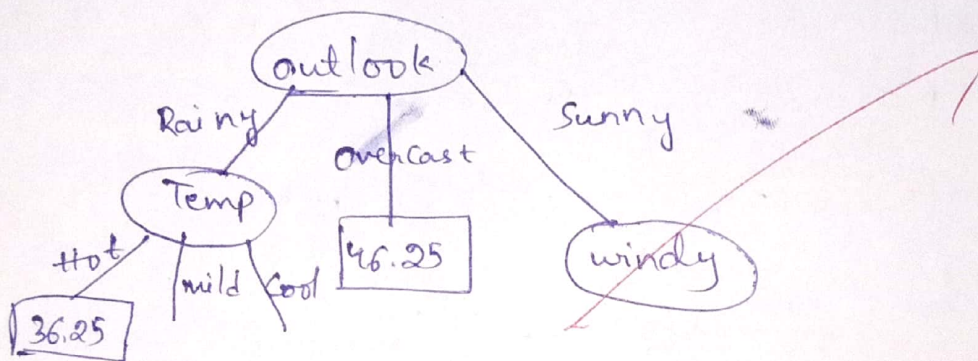 outlook
Rainy
Sunny
overcast
Temp
46.25
windy
Hot
mild
Cool
36.25